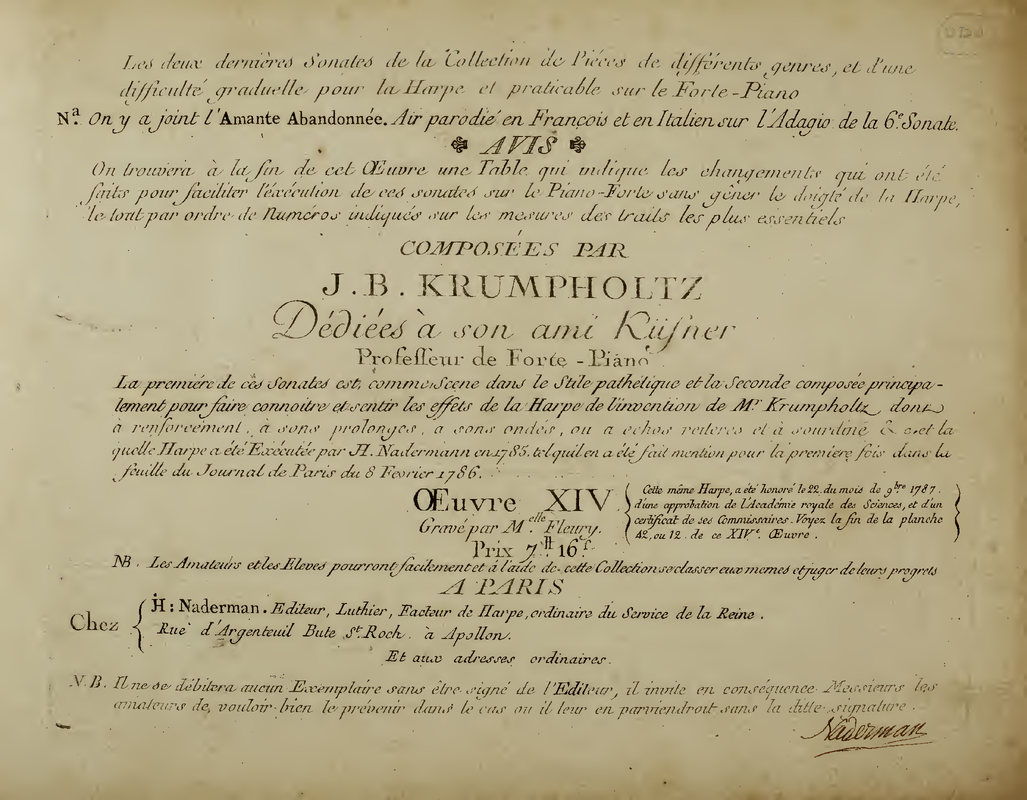 Les deux dernières Sonates de la Collection de Piéces de différents genres, et d'une
difficulté graduelle pour la Harpe et praticable sur le Forte-Piano
Nª. On y a joint l'Amante Abandonnée. Air parodié en François et en Italien sur l'Adagio de la 6.e Sonate.
AVIS
On trouvera à la fin de cet Œuvre une Table qui indique les changements qui ont été
faits pour faciliter l'éxécution de ces sonates sur le Piano-Forte sans gêner le doigté de la Harpe,
le tout par ordre de Numéros indiqués sur les mesures des traits les plus essentiels
COMPOSÉES PAR
J. B. KRUMPHOLTZ
Dédiées à son ami Küfner
Professeur de Forte-Piano
La premiére de cès Sonates est, comme Scene dans le Stile pathétique et la Seconde composée principa-
lement pour faire connoitre et sentir les effets de la Harpe de l'invention de Mr Krumpholtz dont
à renforcement, à sons prolonges, a sons ondés, ou a echos reiteres et à sourdine & c. et la
quelle Harpe a été Exécutée par H. Nadermann en 1785. tel qu'il en a été fait mention pour la premiere fois dans la
feuille du Journal de Paris du 8 Fevrier 1786.
ŒUvre XIV
Gravé par M.elle Fleury.
Prix 7.tt 16.s
Cette même Harpe, a été honoré le 22. du mois de 9bre 1787.
d'une approbation de l'Académie royale des Sciences, et d'un
certificat de ses Commissaires. Voyez la fin de la planche
42, ou 12. de ce XIVe. Œuvre.
NB. Les Amateurs et les Eleves pourront facilement et à l'aide de cette Collection se classer eux memes et juger de leurs progrets
A PARIS
Chez
H: Naderman. Editeur, Luthier, Facteur de Harpe, ordinaire du Service de la Reine.
Rue d'Argenteuil Bute St. Roch. à Apollon.
Et aux adresses ordinaires.
N.B. Il ne se débitera aucun Exemplaire sans être signé de l'Editeur, il invite en conséquence Messieurs les
amateurs de vouloir bien le prévenir dans le cas ou il leur en parviendroit sans la ditte signature.
Naderman